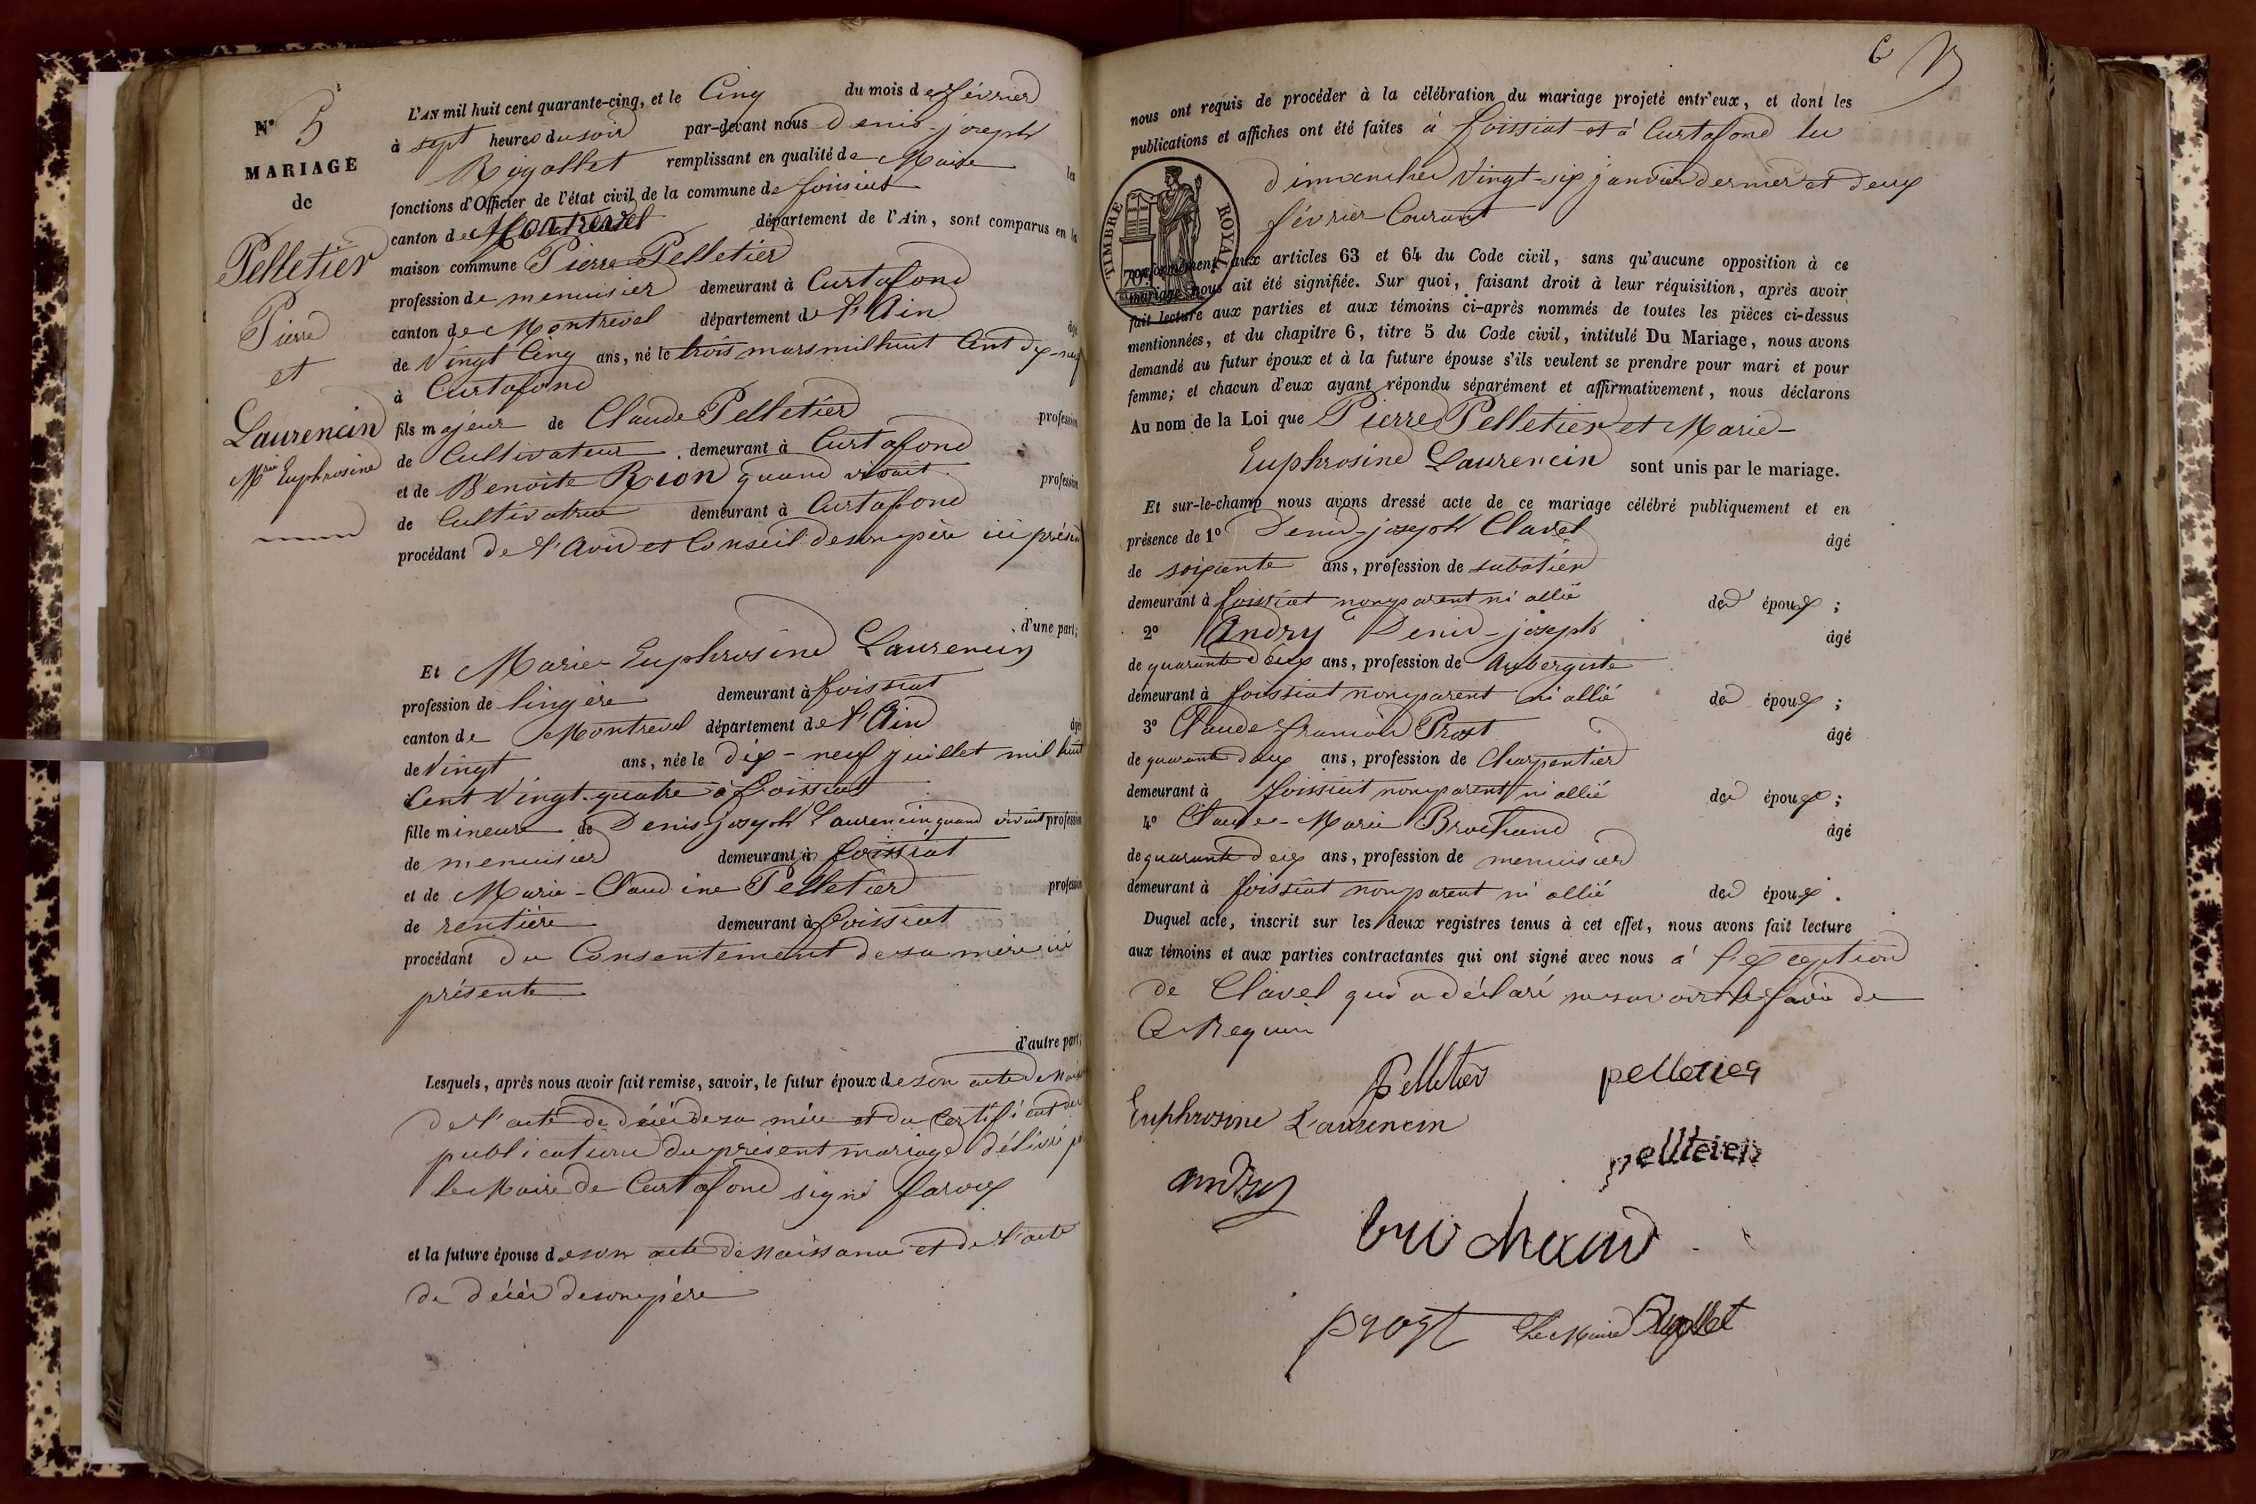 N° 5
MARIAGE
de
Pelletier
Pierre
et
Laurencin
Mie Euphrosine
L'AN mil huit cent quarante-cinq, et le Cinq du mois de février
à sept heures du soir par-devant nous Denis-joseph
Rigollet remplissant en qualité de Maire les
fonctions d'Officier de l'état civil de la commune de foissiat
canton de Montrevel département de l'Ain, sont comparus en la
maison commune Pierre Pelletier
profession de menuisier demeurant à Curtafond
canton de Montrevel département de l'Ain âgé
de Vingt Cinq ans, né le trois mars mil huit Cent dix-neuf
à Curtafond
fils majeur de Claude Pelletier profession
de Cultivateur demeurant à Curtafond
et de Benoite Rion quand vivait profession
de Cultivatrice demeurant à Curtafond
procédant de l'Avis et Conseil de son père ici présent
d'une part;
Et Marie-Euphrosine Laurencin
profession de lingère demeurant à foissiat
canton de Montrevel département de l'Ain âgée
de Vingt ans, née le dix-neuf juillet mil huit
Cent Vingt-quatre à foissiat
fille mineure de Denis-joseph Laurencin quand vivait profession
de menuisier demeurant à foissiat
et de Marie-Claudine Pelletier profession
de rentière demeurant à foissiat
procédant du Consentement de sa mère ici
présente
d'autre part;
Lesquels, après nous avoir fait remise, savoir, le futur époux de son acte de
de l'acte de décès de sa mère et du Certificat des
publications du présent mariage délivré
le Maire de Curtafond signé
et la future épouse de son acte de Naissance et de l'acte
de décès de son père
6
nous ont requis de procéder à la célébration du mariage projeté entr'eux, et dont les
publications et affiches ont été faites à foissiat et à Curtafond les
dimanches Vingt-six janvier dernier et deux
février Courant
TIMBRE ROYAL
conformément aux articles 63 et 64 du Code civil, sans qu'aucune opposition à ce
mariage nous ait été signifiée. Sur quoi, faisant droit à leur réquisition, après avoir
fait lecture aux parties et aux témoins ci-après nommés de toutes les pièces ci-dessus
mentionnées, et du chapitre 6, titre 5 du Code civil, intitulé Du Mariage, nous avons
demandé au futur époux et à la future épouse s'ils veulent se prendre pour mari et pour
femme; et chacun d'eux ayant répondu séparément et affirmativement, nous déclarons
Au nom de la Loi que Pierre Pelletier et Marie-
Euphrosine Laurencin sont unis par le mariage.
Et sur-le-champ nous avons dressé acte de ce mariage célébré publiquement et en
présence de 1° Denis-joseph Clavel âgé
de soixante ans, profession de sabotier
demeurant à foissiat non parent ni allié des époux ;
2° Andry Denis-joseph âgé
de quarante deux ans, profession de Aubergiste
demeurant à foissiat non parent ni allié des époux ;
3° Claude françois Prost âgé
de quarante deux ans, profession de Charpentier
demeurant à foissiat non parent ni allié des époux ;
4° Claude-Marie Brochand âgé
de quarante deux ans, profession de menuisier
demeurant à foissiat non parent ni allié des époux.
Duquel acte, inscrit sur les deux registres tenus à cet effet, nous avons fait lecture
aux témoins et aux parties contractantes qui ont signé avec nous à l'exception
de Clavel qui a déclaré ne savoir le faire de
Ce Requis
Pelletier pelletier
Euphrosine Laurencin
pellteier
andry
brochand
prost Le Maire Rigollet